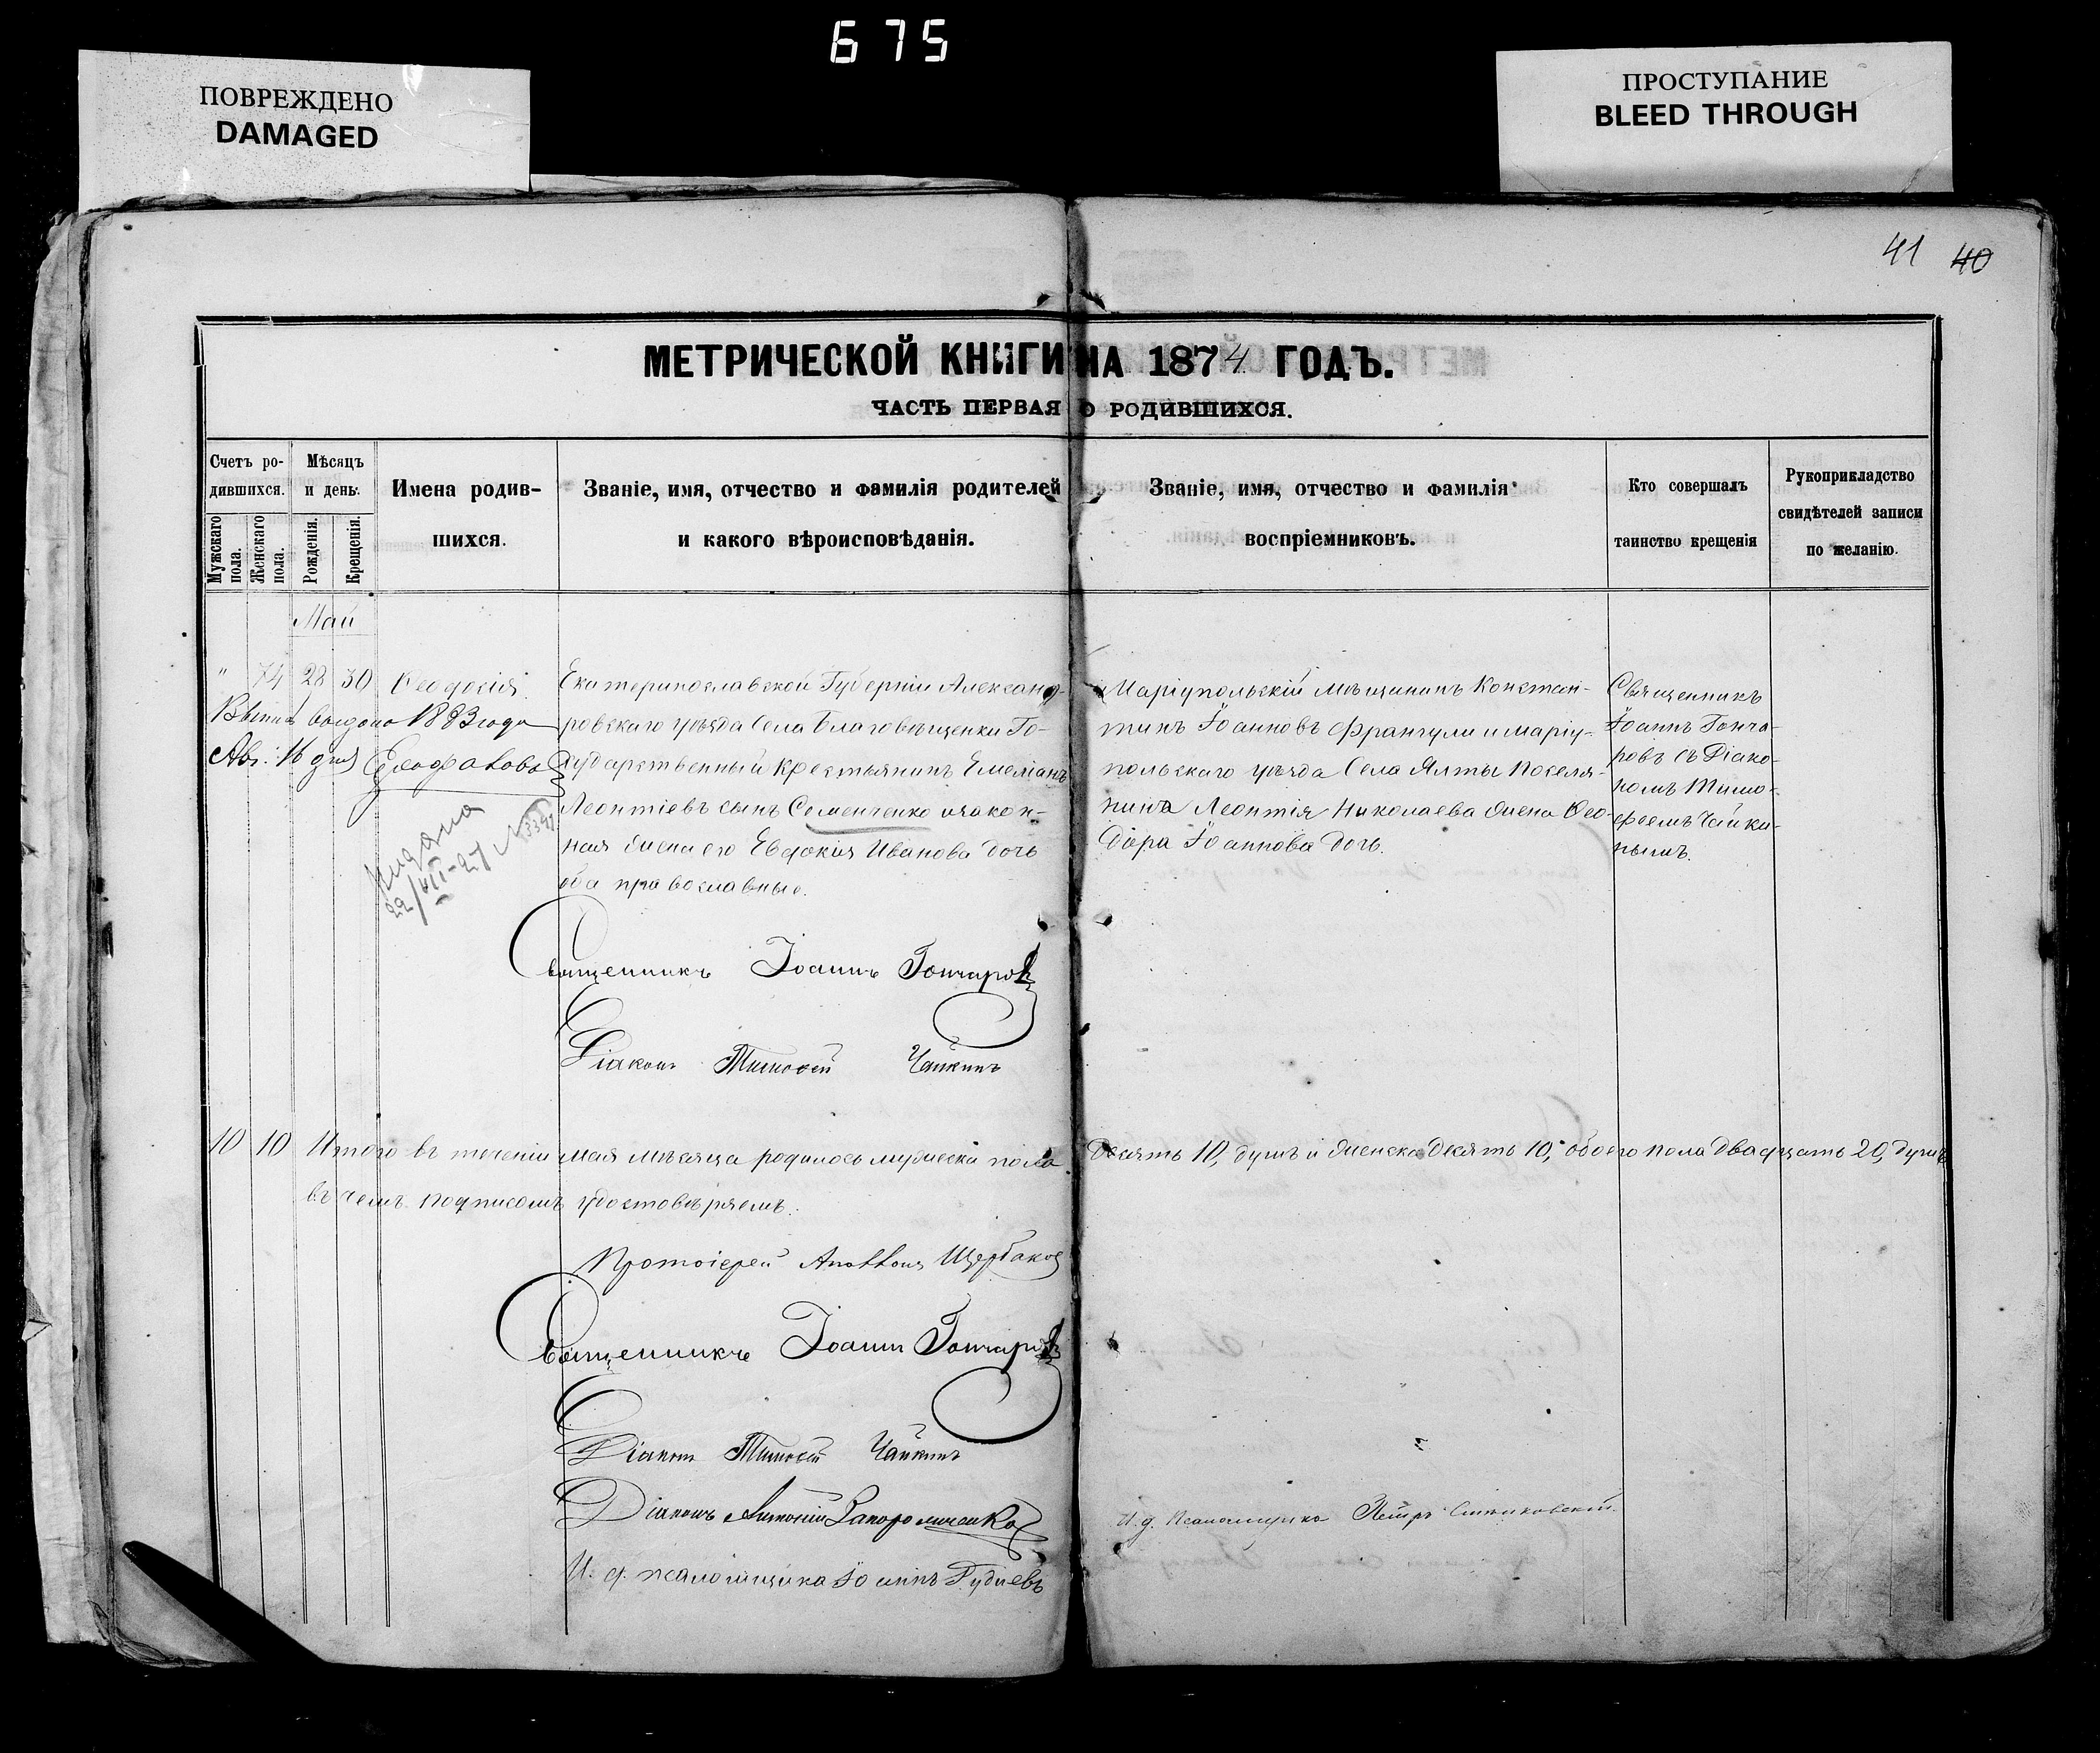 675
ПОВРЕЖДЕНО
DAMAGED
ПРОСТУПАНИЕ
BLEED THROUGH
41 40
МЕТРИЧЕСКОЙ КНИГИ НА 1874 ГОДЪ.
ЧАСТЬ ПЕРВАЯ О РОДИВШИХСЯ.
Счетъ ро-
дившихся.
Мужскаго пола.
Женскаго пола.
Мѣсяцъ
и день.
Рожденія.
Крещенія.
Имена родив-
шихся.
Званіе, имя, отчество и фамилія родителей
и какого вѣроисповѣданія.
Званіе, имя, отчество и фамилія
воспріемниковъ.
Кто совершалъ
таинство крещенія
Рукоприкладство
свидѣтелей записи
по желанію.
Май
" 74 28 30 Ѳеодосія
выдано 1883 года
Авг. 16 дня
22/VII-27
Екатеринославской Губерніи Александ-
ровскаго уѣзда Села Благовѣщенки Го-
сударственный крестьянинъ Емеліанъ
Леонтіевъ сынъ Семенченко и закон-
ная жена его Евдокія Иванова дочь
оба православные.
Маріупольскій мѣщанинъ Констан-
тинъ Іоанновъ Франгули и маріу-
польскаго уѣзда Села Ялты поселя-
нина Леонтія Николаева жена Ѳео-
дора Іоаннова дочь.
Священникъ
Іоаннъ Гонча-
ровъ съ Діако-
номъ Тимо-
феемъ Чайки-
нымъ.
Священникъ Іоаннъ Гончаровъ
Діаконъ Тимофей Чайкинъ
10 10 Итого въ теченіи мая мѣсяца родилось мужеска пола десять 10, душъ и женска десять 10, обоего пола двадцать 20, душъ
въ чемъ подписомъ удостовѣряемъ.
Протоіерей Аполлонъ Щербаковъ
Священникъ Іоаннъ Гончаровъ
Діаконъ Тимофей Чайкинъ
Діаконъ Антоній
И. д. Псаломщика Петръ
И. д. псаломщика Іоаннъ